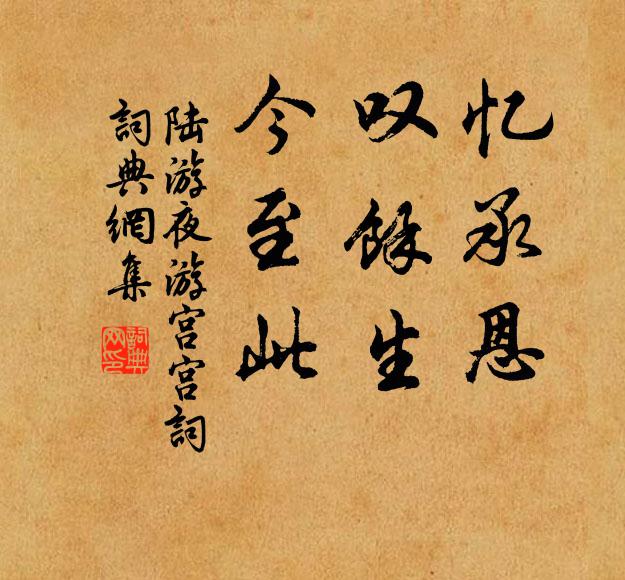 忆承恩
叹餘生
今至此
陆游夜游宫宫詞
詞典網集
詞典
网印